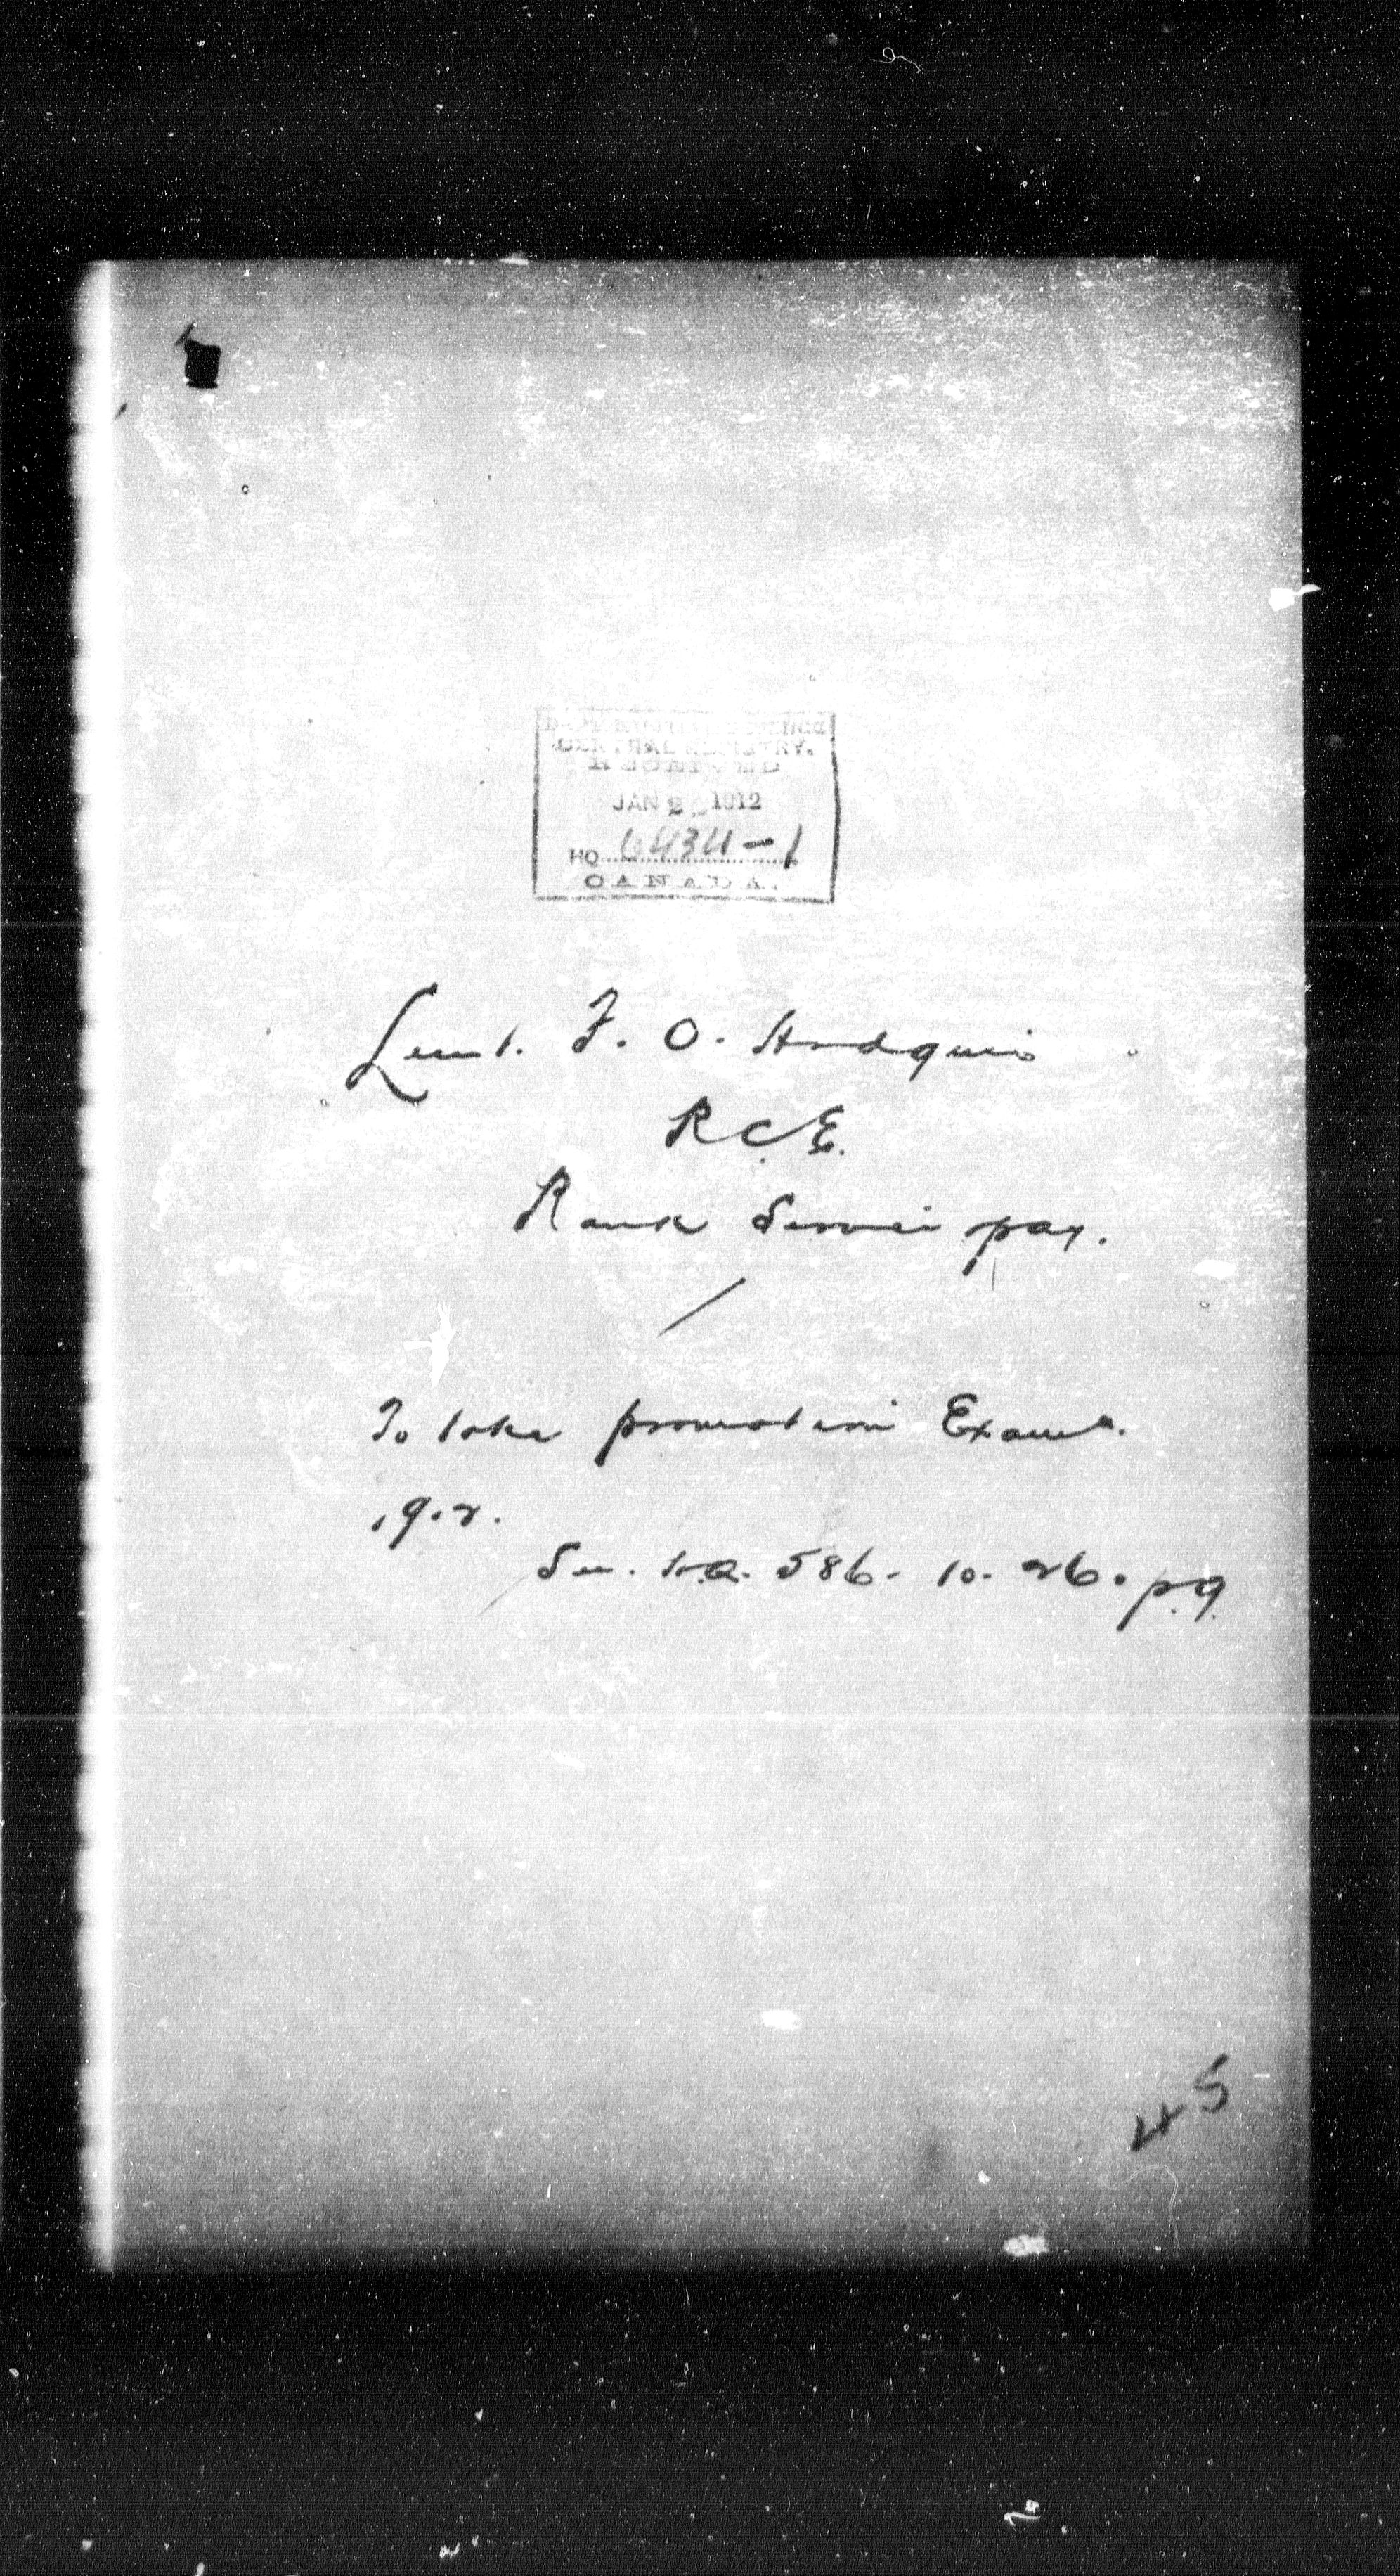 CENTRAL REGISTRY.
RECEIVED
JAN 2 1912
HQ 6434-1
CANADA.
Lieut. F. O. Hodgins
R.C.E.
Rank Service pay.
To take promotion Exam.
1912.
See. H.Q. 586-10-26. p.9.
45